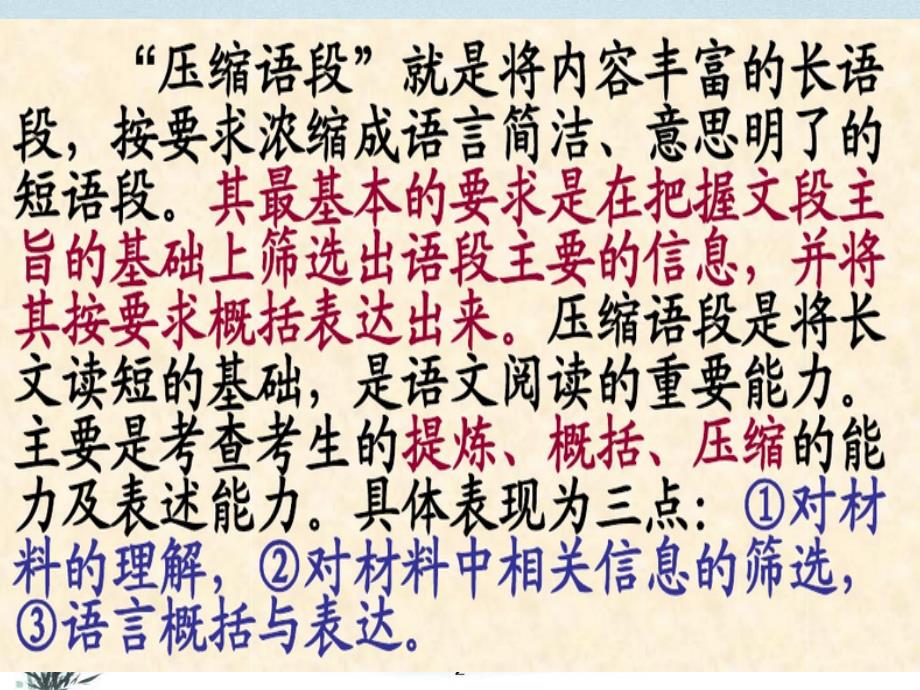 “压缩语段”就是将内容丰富的长语
段，按要求浓缩成语言简洁、意思明了的
短语段。其最基本的要求是在把握文段主
旨的基础上筛选出语段主要的信息，并将
其按要求概括表达出来。压缩语段是将长
文读短的基础，是语文阅读的重要能力。
主要是考查考生的提炼、概括、压缩的能
力及表述能力。具体表现为三点：①对材
料的理解，②对材料中相关信息的筛选，
③语言概括与表达。
2